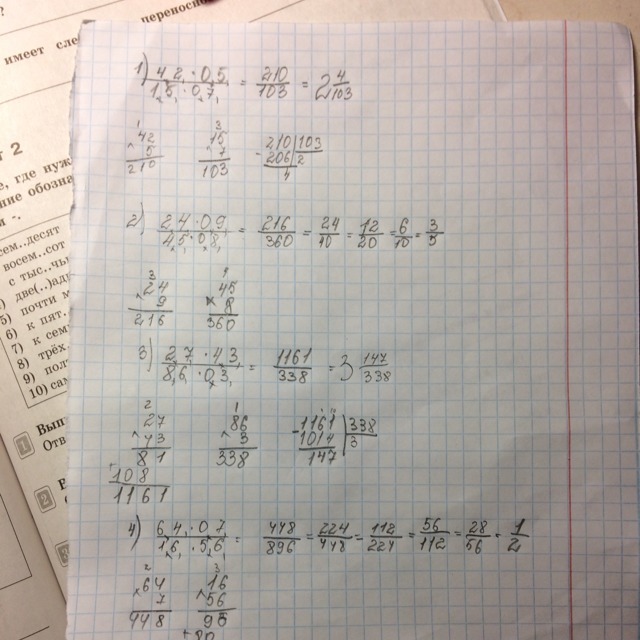 ?
имеет сле
переносно
т 2
е, где нуж
ние обозна
и -.
сем..десят
восем..сот
с тыс..чь
две(..)ад
5) почти м
6) к пят.
7) к сем
8) трёх
9) пол
10) сам
1 Вып
Отв
2
1) 4,2 · 0,5 / 1,5 · 0,7 = 210/103 = 2 4/103
42 × 5 = 210
15 × 7 = 103
210 | 103
206 | 2
4
2) 2,4 · 0,9 / 4,5 · 0,8 = 216/360 = 24/40 = 12/20 = 6/10 = 3/5
24 × 9 = 216
45 × 8 = 360
3) 2,7 · 4,3 / 8,6 · 0,3 = 1161/338 = 3 147/338
27 × 43
81
108
1161
86 × 3 = 338
1161 | 338
1014 | 3
147
4) 6,4 · 0,7 / 1,6 · 5,6 = 448/896 = 224/448 = 112/224 = 56/112 = 28/56 = 1/2
64 × 7 = 448
16 × 56
96
+80